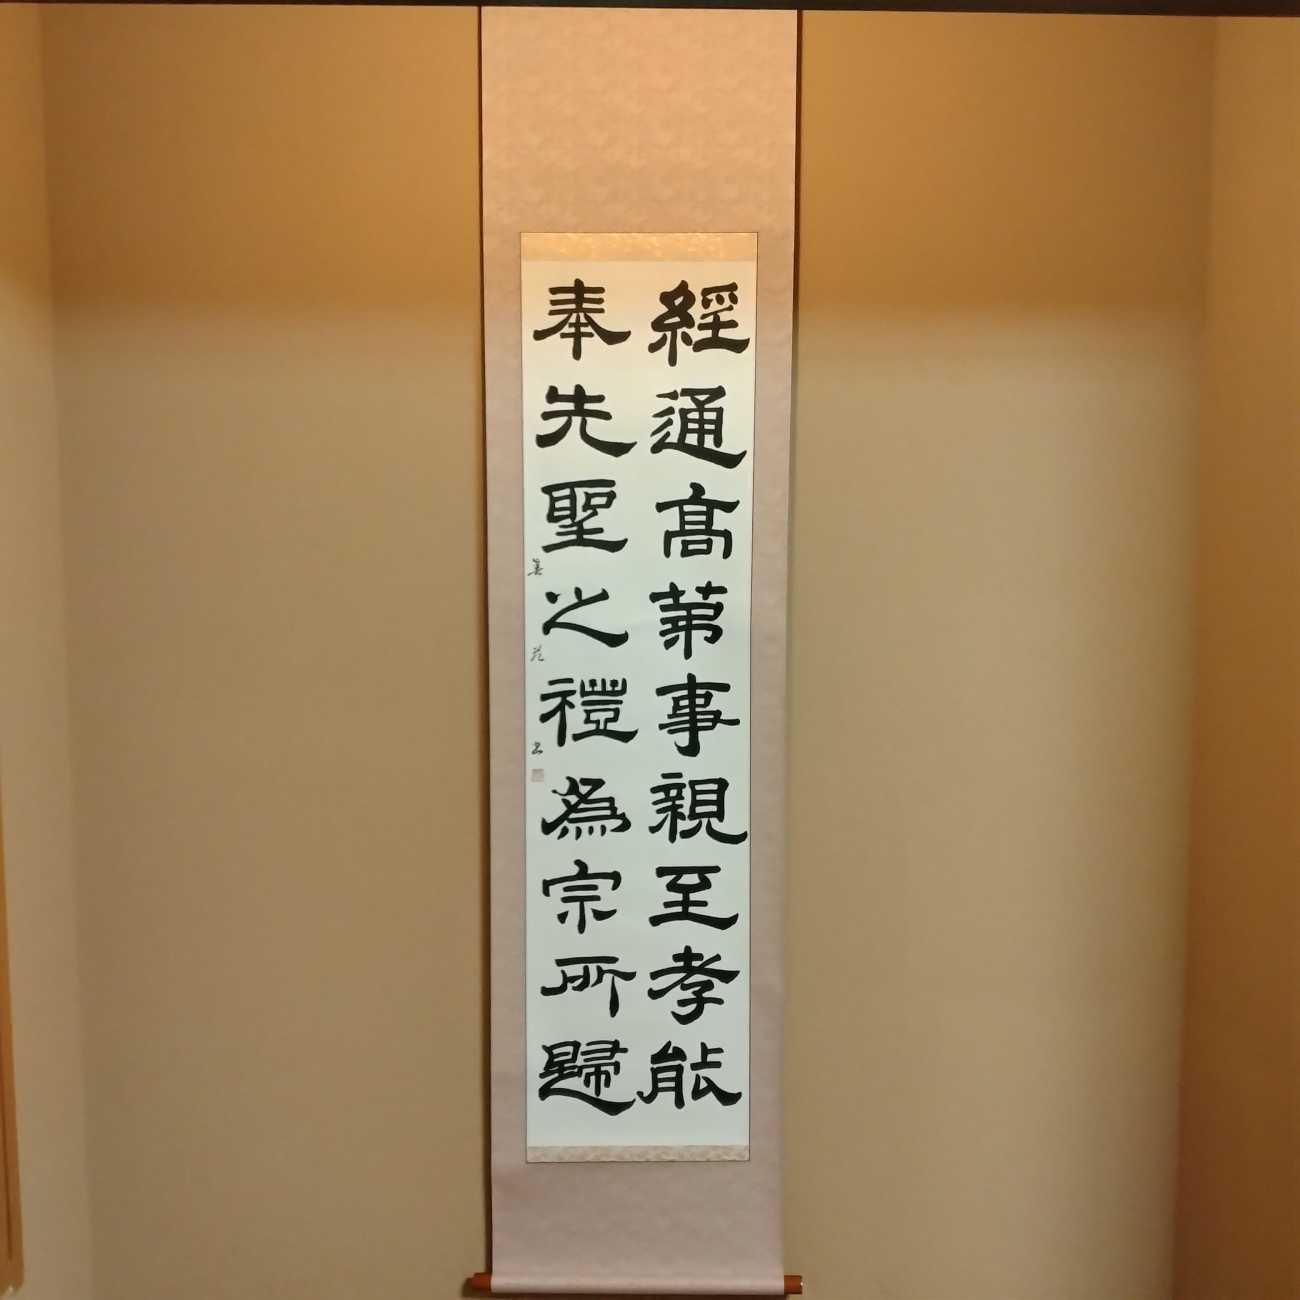 經通高第事親至孝能
奉先聖之禮為宗所歸